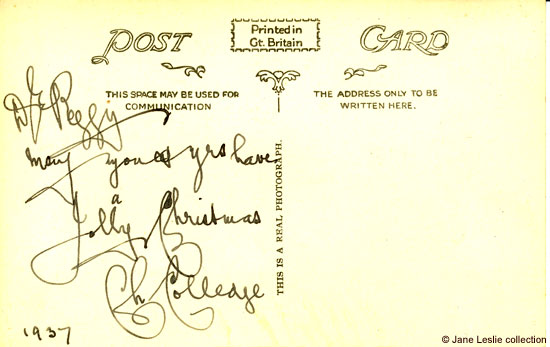 POST CARD
Printed in
Gt. Britain
THIS SPACE MAY BE USED FOR
COMMUNICATION
THE ADDRESS ONLY TO BE
WRITTEN HERE.
THIS IS A REAL PHOTOGRAPH.
Dr Peggy
may you & yrs have
a
Jolly Christmas
Ch Colledge
1937
© Jane Leslie collection